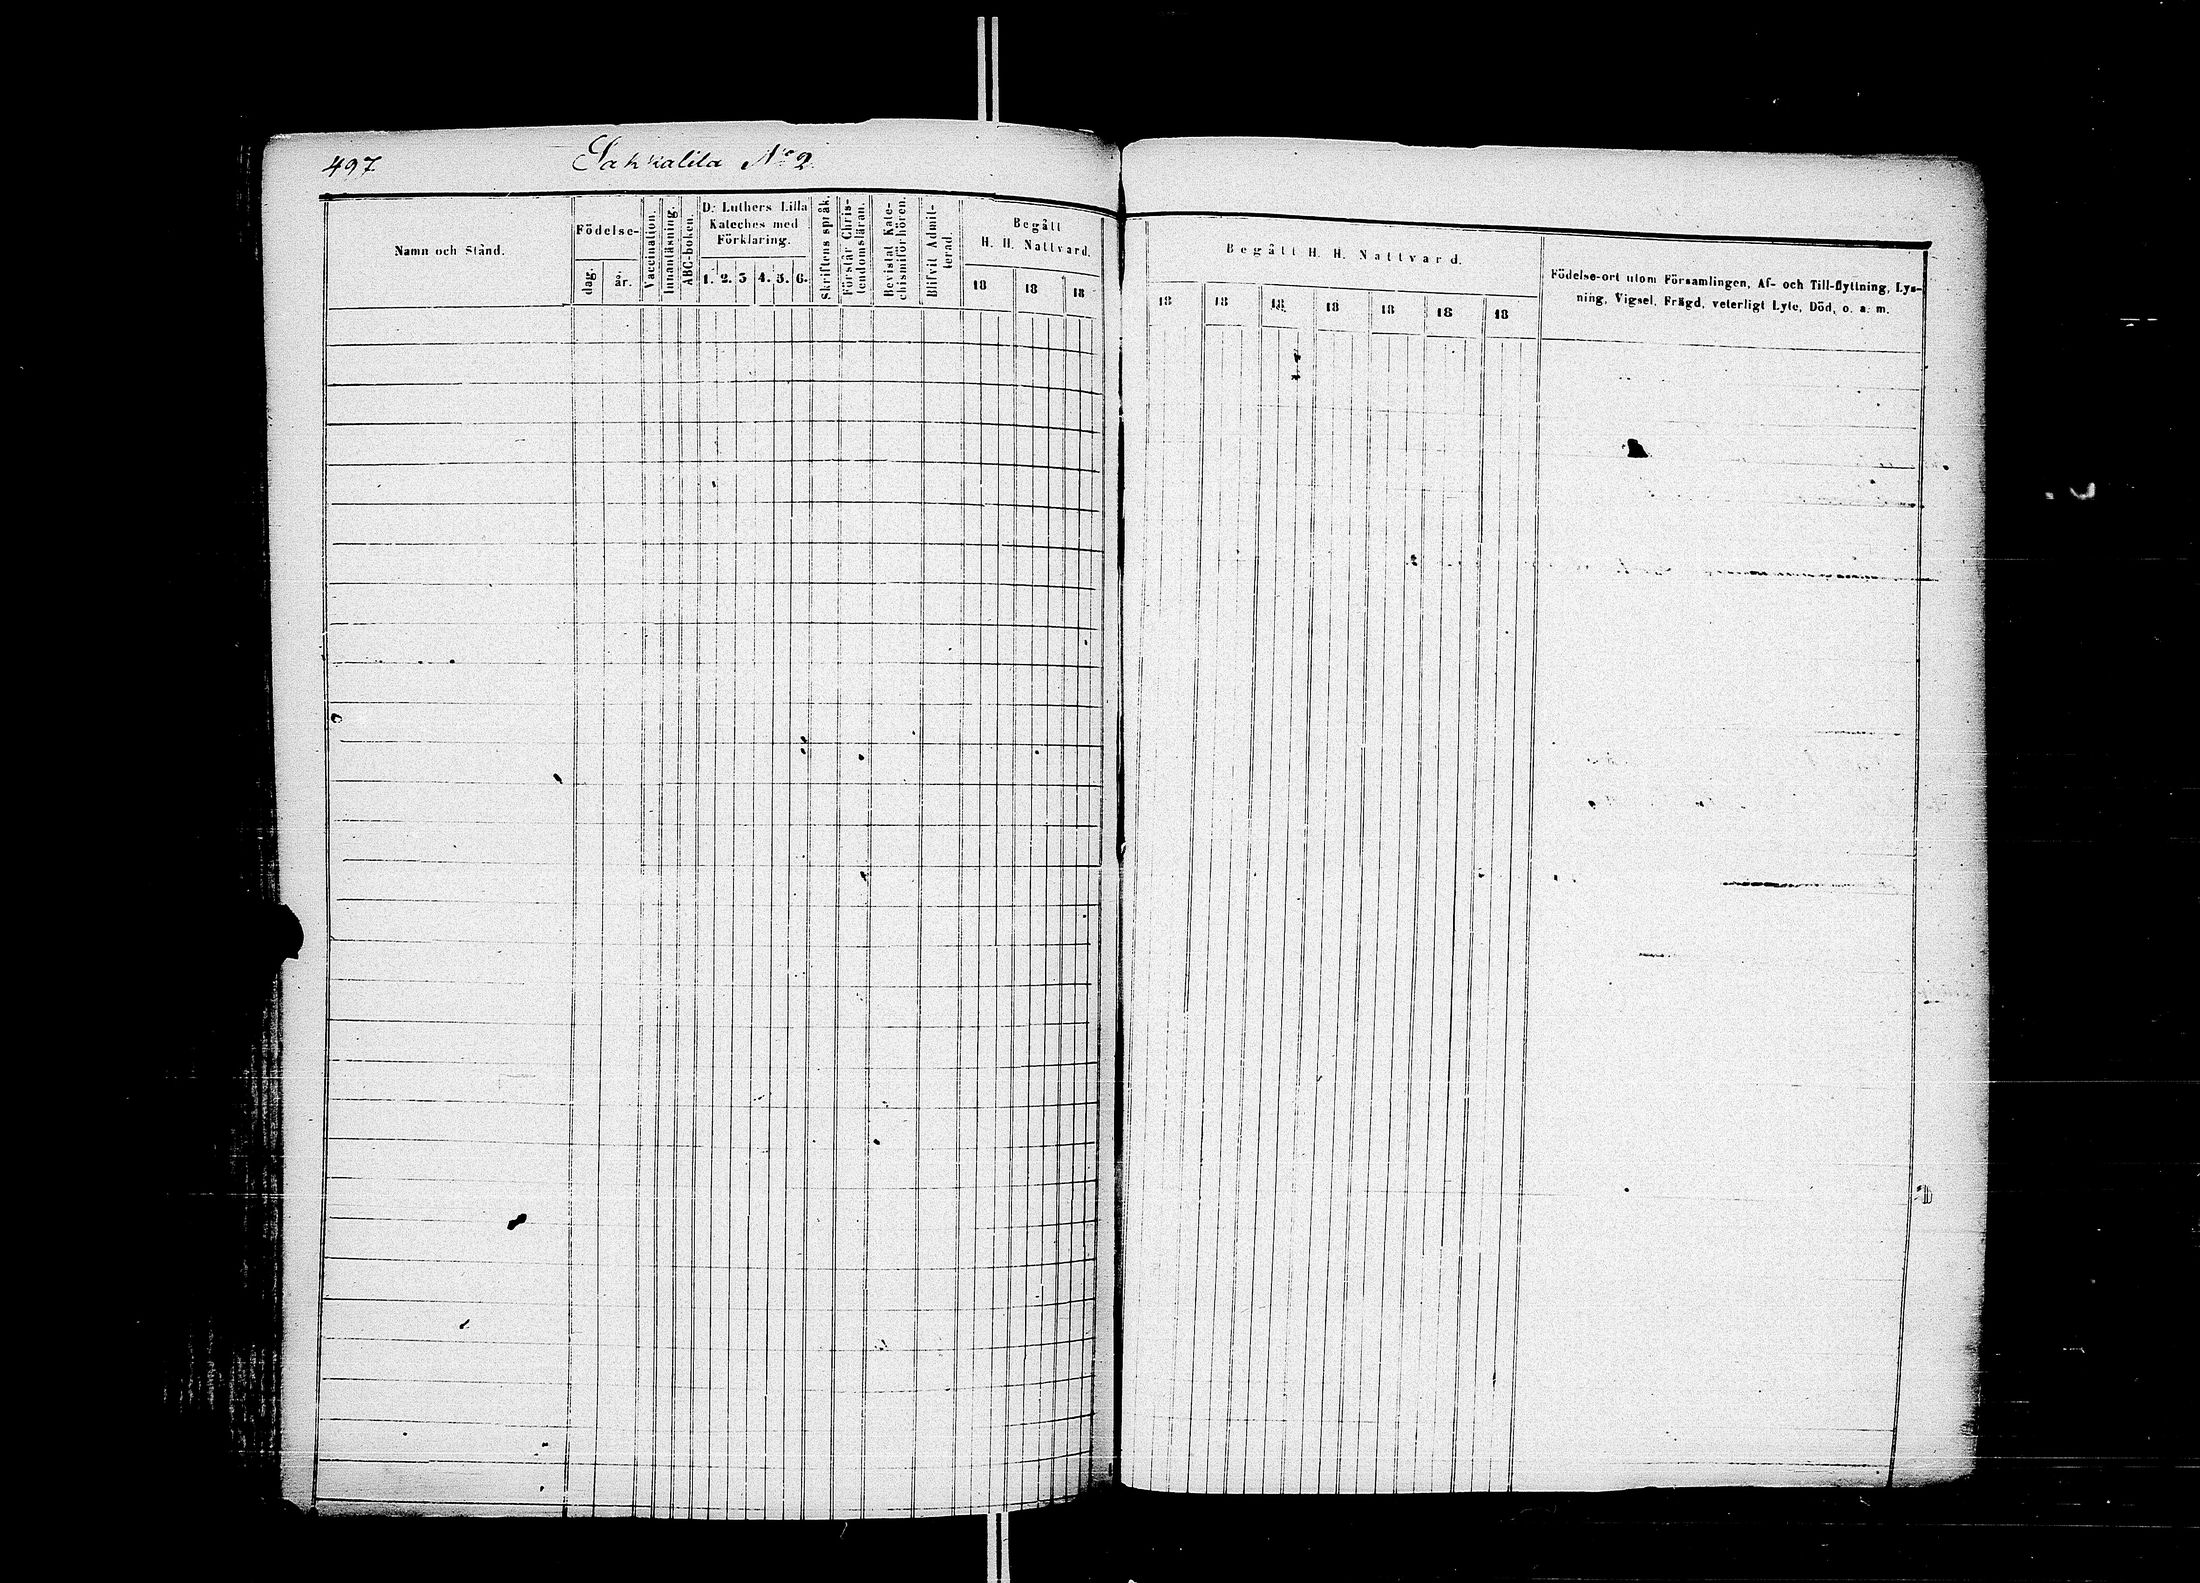 497 Sakkalila No 2.
Namn och Stånd.
Födelse-
dag.
år.
Vaccination.
Innanläsning.
ABC-boken.
D:r Luthers Lilla
Kateches med
Förklaring.
1. 2. 3 4. 5. 6.
Skriftens språk.
Förstår Chris-
tendomsläran.
Bevistat Kate-
chismiförhören.
Blifvit Admit-
terad.
Begått
H. H. Nattvard.
18 18 18
Begått H. H. Nattvard.
18 18 18 18 18 18 18
Födelse-ort utom Församlingen, Af- och Till-flyttning, Lys-
ning, Vigsel, Frägd, veterligt Lyte, Död, o. a. m.